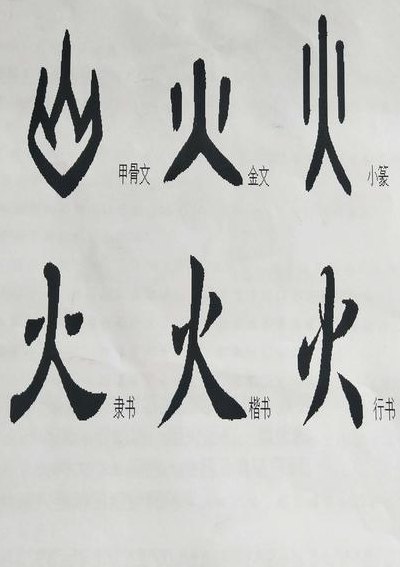 火 甲骨文 火 金文 火 小篆
火 隶书 火 楷书 火 行书